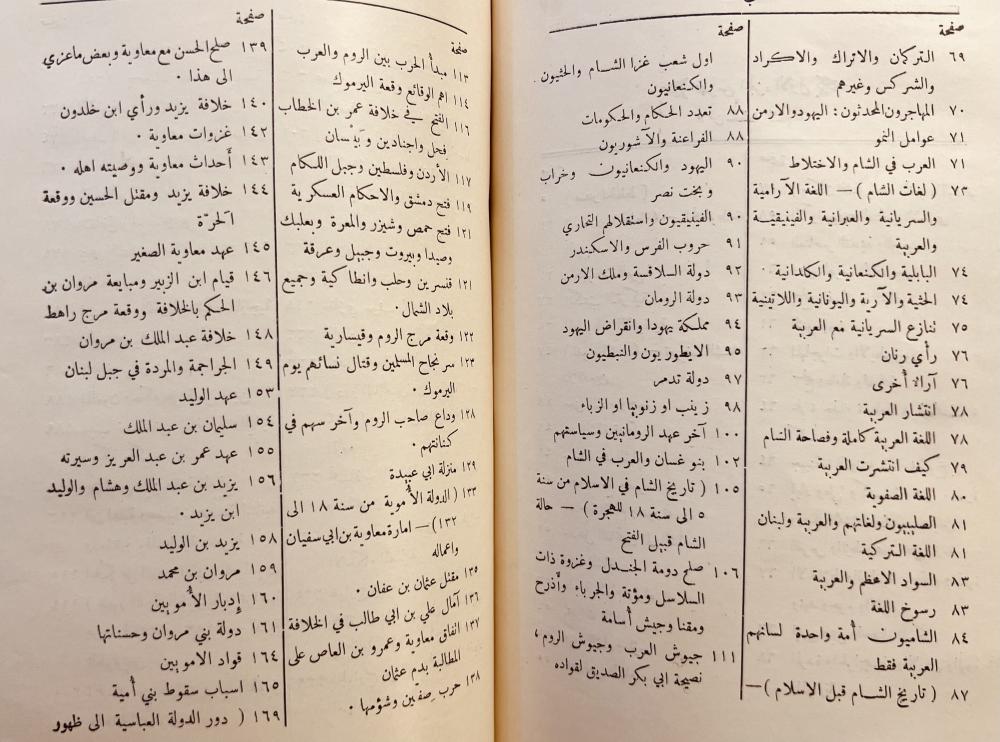 ب
صفحة
٦٩ التركمان والاتراك والاكراد
والشركس وغيرهم
٧٠ المهاجرون المحدثون: اليهود والارمن
٧١ عوامل النمو
٧١ العرب في الشام والاختلاط
٧٣ (لغات الشام) — اللغة الآرامية
والسريانية والعبرانية والفينيقية
والعربية
٧٤ البابلية والكنعانية والكلدانية
٧٤ الحثية والآرية واليونانية واللاتينية
٧٥ تنازع السريانية مع العربية
٧٦ رأي رنان
٧٦ آراء أخرى
٧٨ انتشار العربية
٧٨ اللغة العربية كاملة وفصاحة الشام
٧٩ كيف انتشرت العربية
٨٠ اللغة الصفوية
٨١ الصليبيون ولغاتهم والعربية ولبنان
٨١ اللغة التركية
٨٣ السواد الاعظم والعربية
٨٣ رسوخ اللغة
٨٤ الشاميون أمة واحدة لسانهم
العربية فقط
٨٧ (تاريخ الشام قبل الاسلام) —
صفحة
اول شعب غزا الشام والحثيون
والكنعانيون
٨٨ تعدد الحكام والحكومات
٨٨ الفراعنة والآشوريون
٩٠ اليهود والكنعانيون وخراب
وبخت نصر
٩٠ الفينيقيون واستقلالهم التجاري
٩١ حروب الفرس والاسكندر
٩٢ دولة السلاقسة وملك الارمن
٩٣ دولة الرومان
٩٤ مملكة يهودا وانقراض اليهود
٩٥ الايطوريون والنبطيون
٩٧ دولة تدمر
٩٨ زينب او زنوبيا او الزباء
١٠٠ آخر عهد الرومانيين وسياستهم
١٠٢ بنو غسان والعرب في الشام
١٠٥ (تاريخ الشام في الاسلام من سنة
٥ الى سنة ١٨ للهجرة) — حالة
الشام قبيل الفتح
١٠٦ صلح دومة الجندل وغزوة ذات
السلاسل ومؤتة والجرباء وأذرح
ومقنا وجيش أسامة
١١١ جيوش العرب وجيوش الروم،
نصيحة ابي بكر الصديق لقواده
صفحة
١١٣ مبدأ الحرب بين الروم والعرب
١١٤ اهم الوقائع وقعة اليرموك
١١٦ الفتح في خلافة عمر بن الخطاب
فحل واجنادين وبيسان
١١٧ الأردن وفلسطين وجبل اللكام
١١٩ فتح دمشق والاحكام العسكرية
١٢١ فتح حمص وشيزر والمعرة وبعلبك
وصيدا وبيروت وجبيل وعرقة
١٢١ قنسرين وحلب وانطاكية وجميع
بلاد الشمال.
١٢٢ وقعة مرج الروم وقيسارية
١٢٣ سر نجاح المسلمين وقتال نسائهم يوم
اليرموك.
١٢٨ وداع صاحب الروم وآخر سهم في
كنانتهم.
١٢٩ منزلة ابي عبيدة
١٣٣ (الدولة الأموية من سنة ١٨ الى
١٣٢) — امارة معاوية بن ابي سفيان
واعماله
١٣٥ مقتل عثمان بن عفان.
١٣٦ آمال علي بن ابي طالب في الخلافة
١٣٧ اتفاق معاوية وعمرو بن العاص على
المطالبة بدم عثمان
١٣٨ حرب صفين وشؤمها.
صفحة
١٣٩ صلح الحسن مع معاوية وبعض ماعزي
الى هذا.
١٤٠ خلافة يزيد ورأي ابن خلدون
١٤٢ غزوات معاوية.
١٤٣ أحداث معاوية ووصيته اهله.
١٤٤ خلافة يزيد ومقتل الحسين ووقعة
الحرّة
١٤٥ عهد معاوية الصغير
١٤٦ قيام ابن الزبير ومبايعة مروان بن
الحكم بالخلافة ووقعة مرج راهط
١٤٨ خلافة عبد الملك بن مروان
١٤٩ الجراجمة والمردة في جبل لبنان
١٥٣ عهد الوليد
١٥٤ سليمان بن عبد الملك
١٥٥ عهد عمر بن عبد العزيز وسيرته
١٥٦ يزيد بن عبد الملك وهشام والوليد
ابن يزيد.
١٥٨ يزيد بن الوليد
١٥٩ مروان بن محمد
١٦٠ إدبار الأمويين
١٦١ دولة بني مروان وحسناتها
١٦٤ قواد الامويين
١٦٥ اسباب سقوط بني أمية
١٦٩ (دور الدولة العباسية الى ظهور